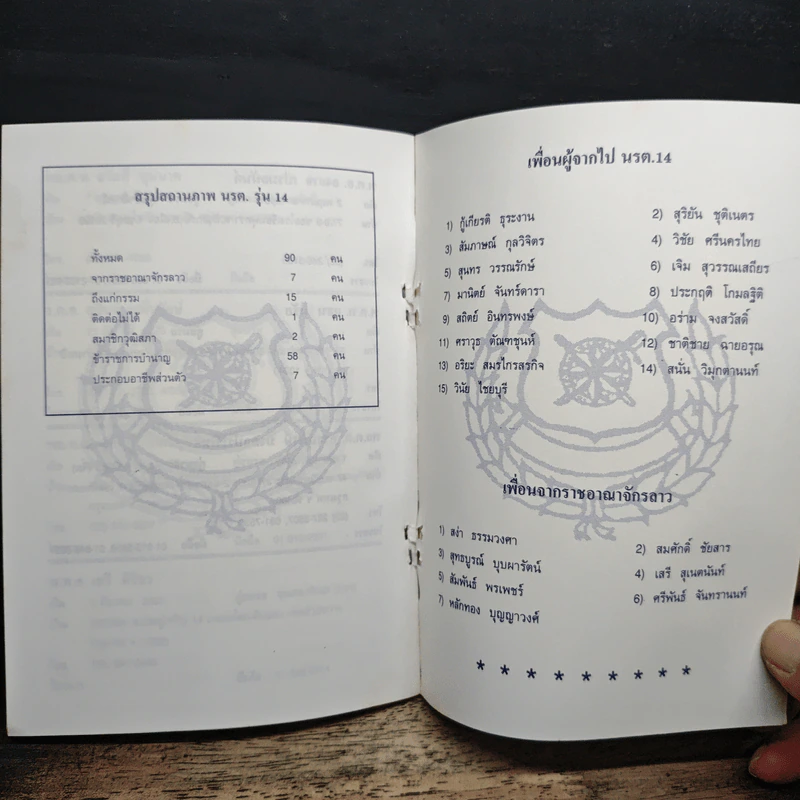 สรุปสถานภาพ นรต. รุ่น 14
ทั้งหมด 90 คน
จากราชอาณาจักรลาว 7 คน
ถึงแก่กรรม 15 คน
ติดต่อไม่ได้ 1 คน
สมาชิกวุฒิสภา 2 คน
ข้าราชการบำนาญ 58 คน
ประกอบอาชีพส่วนตัว 7 คน
เพื่อนผู้จากไป นรต.14
1) กู้เกียรติ ธุระงาน 2) สุริยัน ชุติเนตร
3) สัมภาษณ์ กุลวิจิตร 4) วิชัย ศรีนครไทย
5) สุนทร วรรณรักษ์ 6) เจิม สุวรรณเสถียร
7) มานิตย์ จันทร์ดารา 8) ประกฤติ โกมลฐิติ
9) สถิตย์ อินทรพงษ์ 10) อร่าม จงสวัสดิ์
11) ศราวุธ ตัณฑชุนห์ 12) ชาติชาย ฉายอรุณ
13) อริยะ สมรไกรสรกิจ 14) สนั่น วิมุกตานนท์
15) วินัย ไชยบุรี
เพื่อนจากราชอาณาจักรลาว
1) สง่า ธรรมวงศา 2) สมศักดิ์ ชัยสาร
3) สุทธบูรณ์ บุบผารัตน์ 4) เสรี สุเนตนันท์
5) สัมพันธ์ พรเพชร์ 6) ศรีพันธ์ จันทรานนท์
7) หลักทอง บุญญาวงศ์
* * * * * * * * *